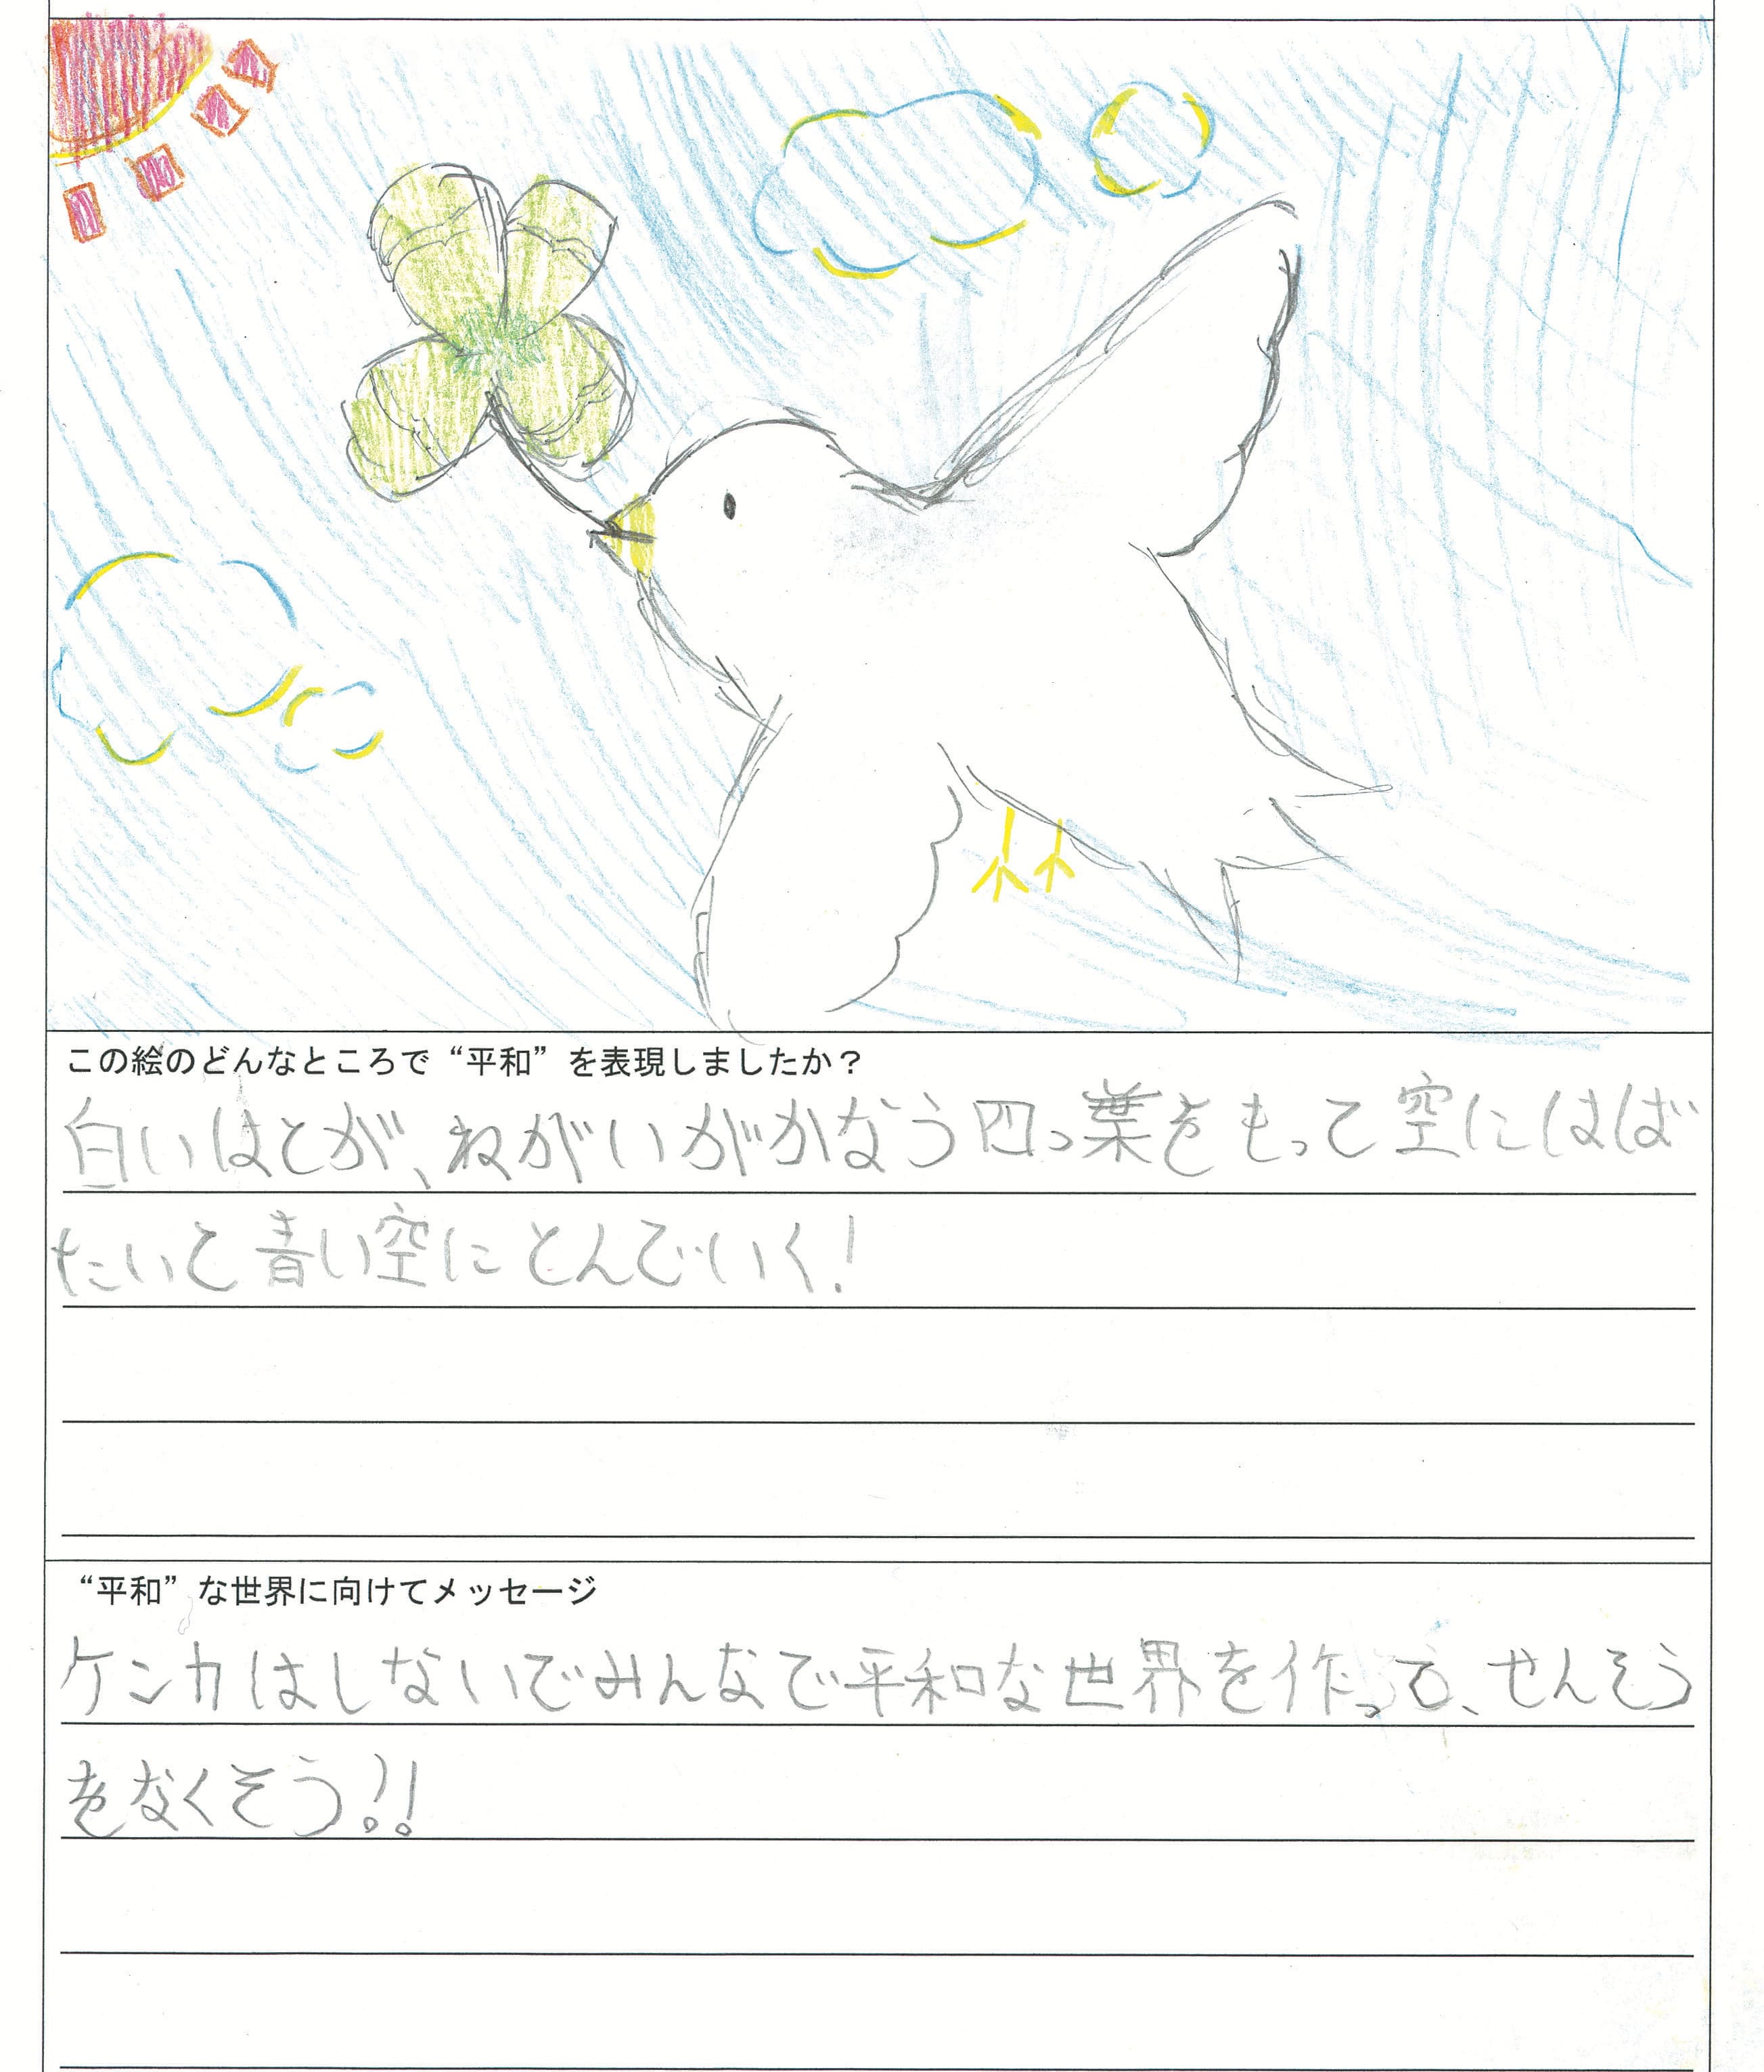 この絵のどんなところで“平和”を表現しましたか？
白いはとが、ねがいがかなう四っ葉をもって空にはば
たいて青い空にとんでいく!
“平和”な世界に向けてメッセージ
ケンカはしないでみんなで平和な世界を作って、せんそう
をなくそう!!